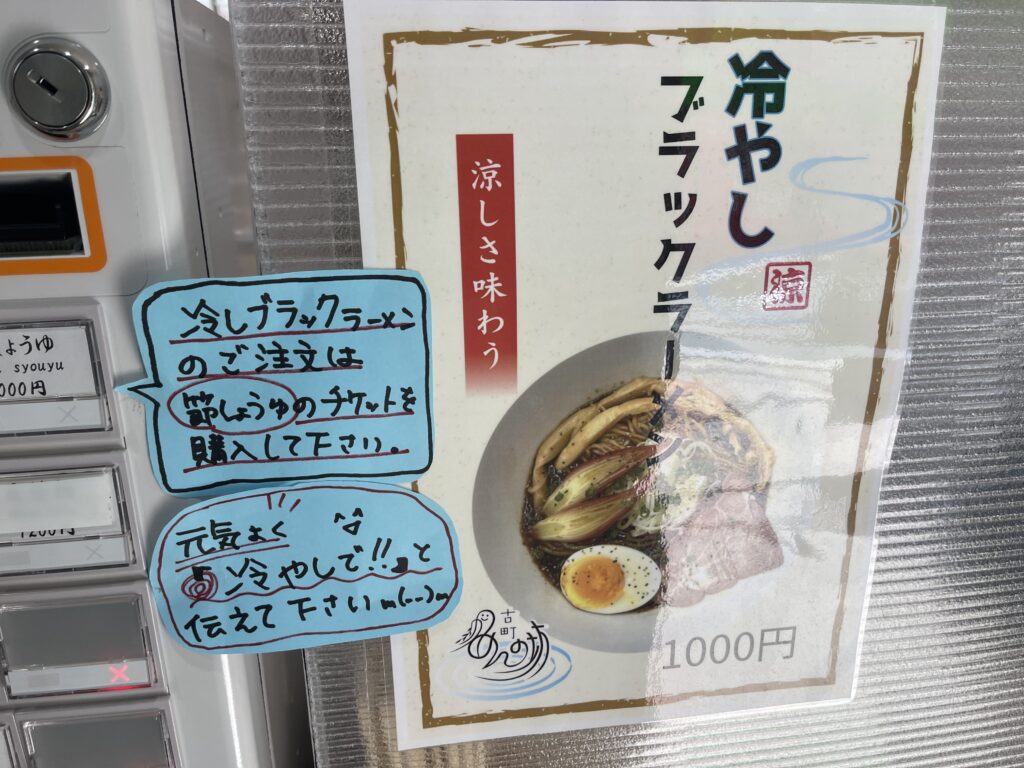 冷やし
ブラックラーメン
涼
涼しさ味わう
古町
めんの坊
1000円
冷しブラックラーメン
のご注文は
節しょうゆのチケットを
購入して下さい。
元気よく
『冷やしで!!』と
伝えて下さいm(--)m
ょうゆ
syouyu
000円
1200円